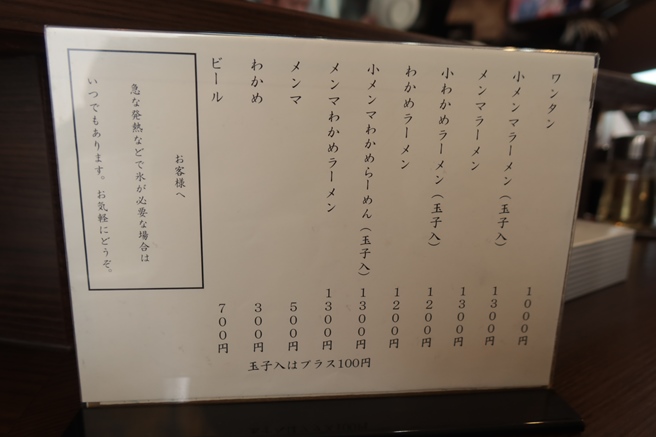 ワンタン 1000円
小メンマラーメン（玉子入） 1300円
メンマラーメン 1300円
小わかめラーメン（玉子入） 1200円
わかめラーメン 1200円
小メンマわかめらーめん（玉子入） 1300円
メンマわかめラーメン 1300円
メンマ 500円
わかめ 300円
ビール 700円
玉子入はプラス100円
お客様へ
急な発熱などで氷が必要な場合は
いつでもあります。お気軽にどうぞ。